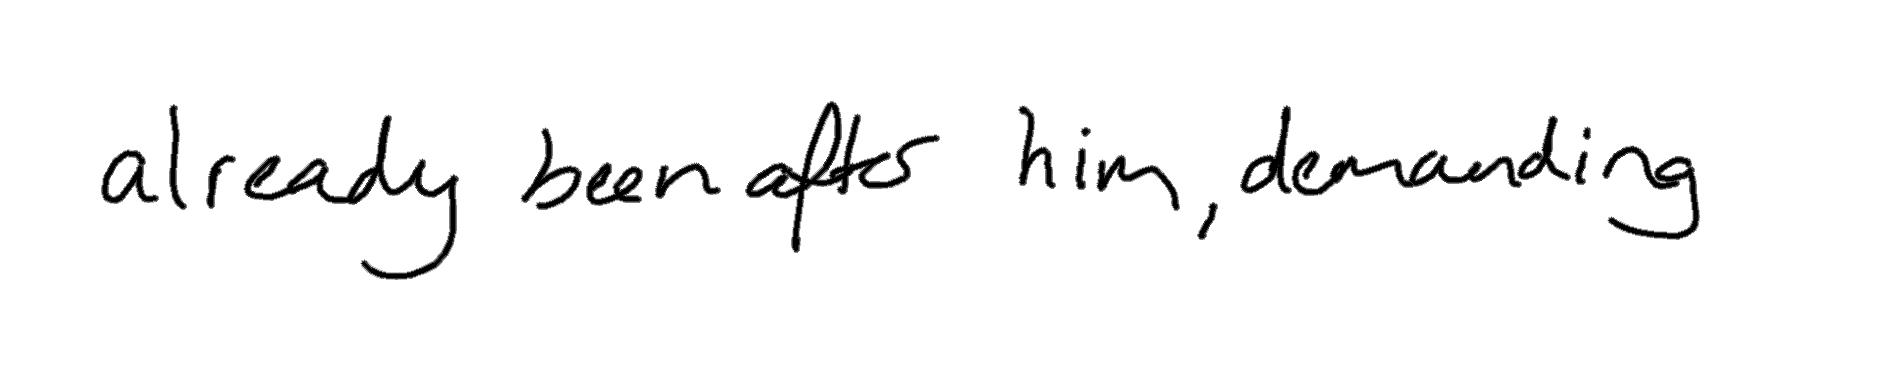 already been after him, demanding